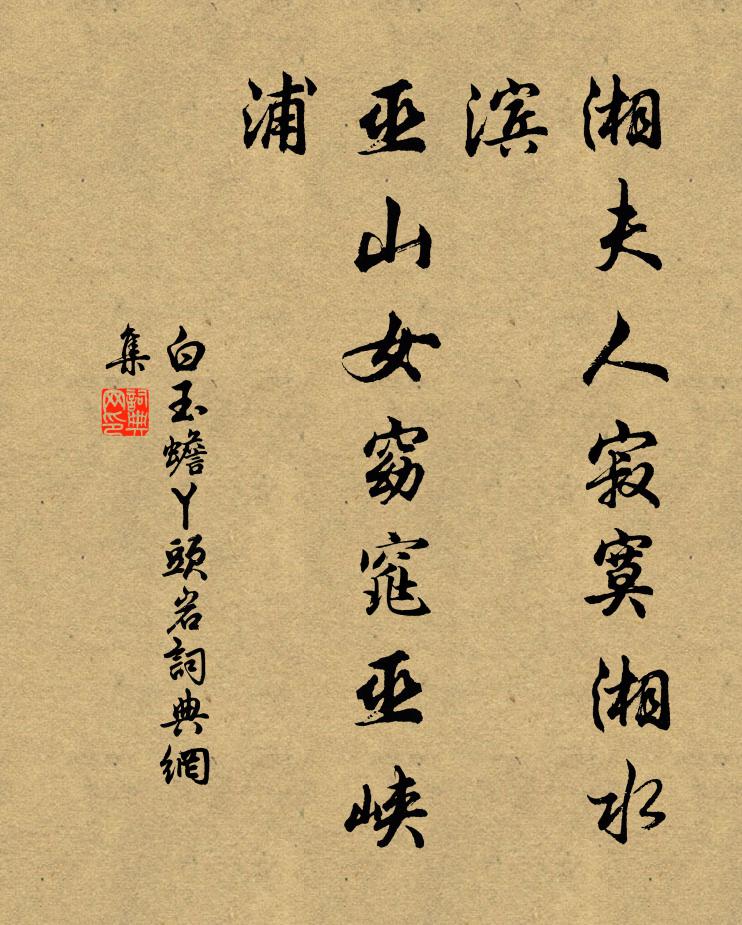 湘夫人寂寞湘水
滨
巫山女窈窕巫峡
浦
白玉蟾丫頭岩詞典網
集
詞典网印